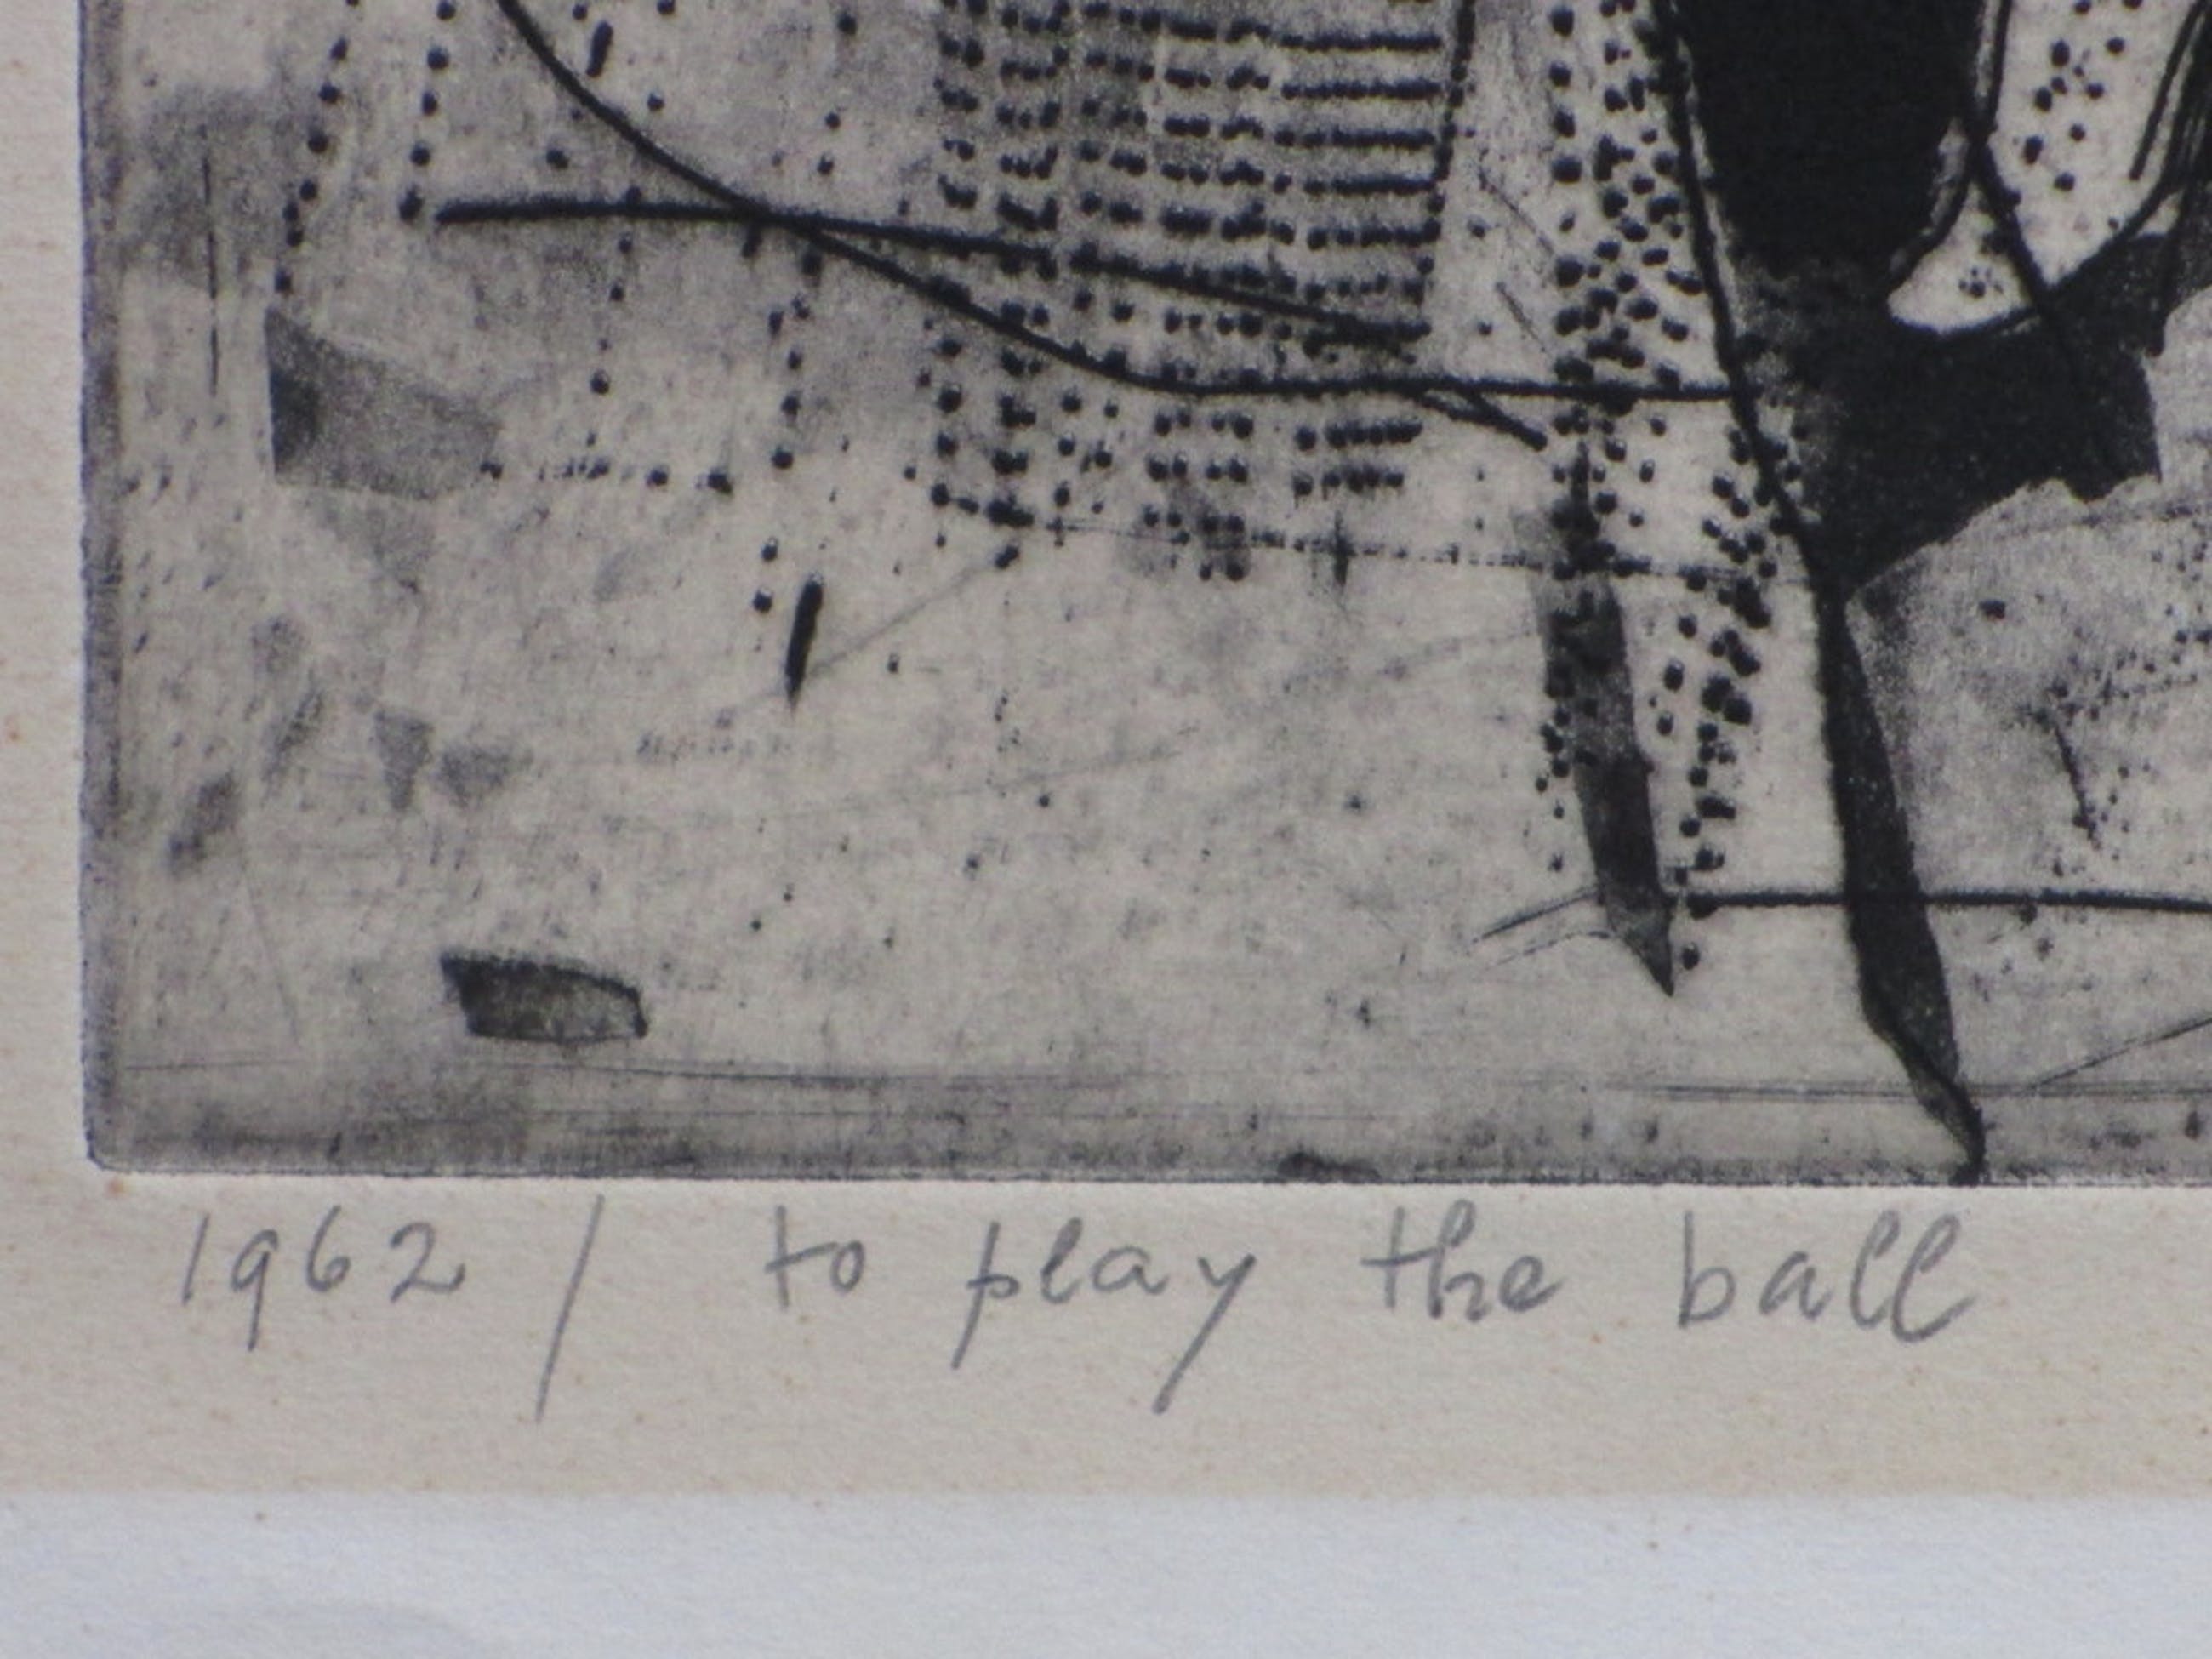 1962 / to play the ball